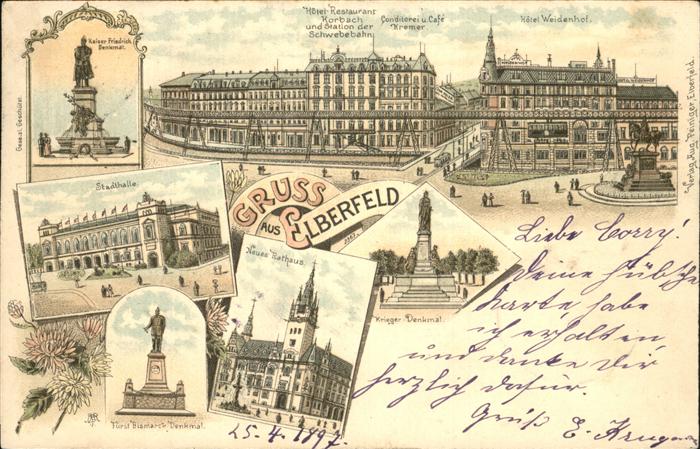 Kaiser Friedrich
Denkmal.
Hôtel-Restaurant
Korbach
und Station der
Schwebebahn
Conditorei u. Café
Kremer.
Hôtel Weidenhof.
Gesezl. Geschützt.
Stadthalle.
GRUSS
AUS ELBERFELD
Neues Rathaus.
Krieger-Denkmal.
Fürst Bismarck-Denkmal.
Liebe Corry!
Deine hübsche
Karte habe
ich erhalten,
und danke Dir
herzlich dafür.
Gruß E.
25.4.1897.